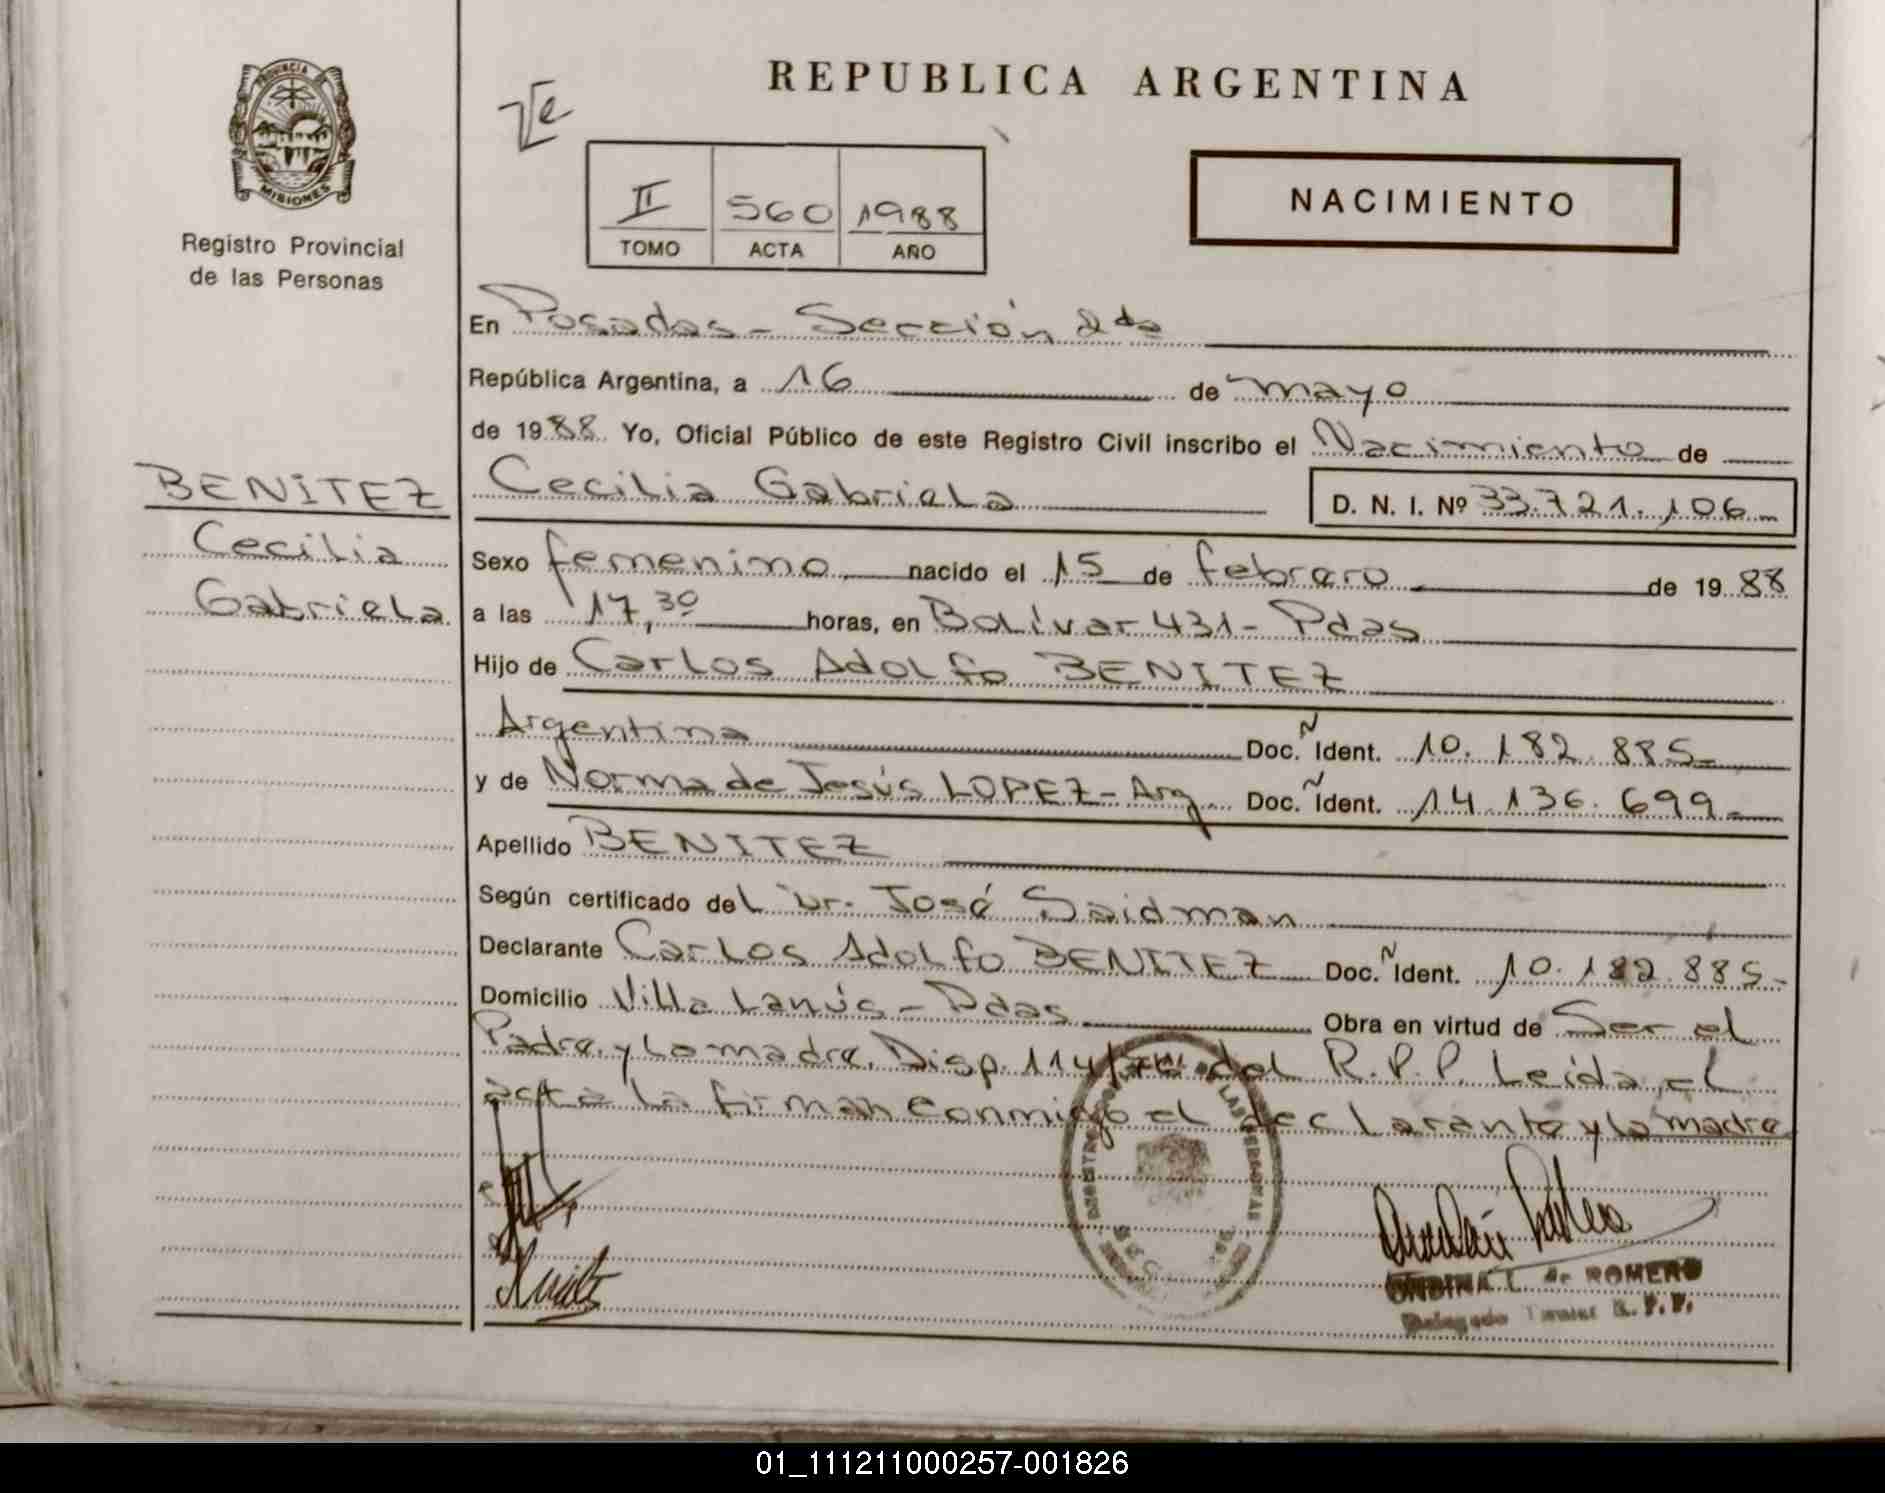 PROVINCIA
MISIONES
Registro Provincial
de las Personas
BENITEZ
Cecilia
Gabriela
REPUBLICA ARGENTINA
II 560 1988
TOMO ACTA AÑO
NACIMIENTO
En Posadas - Sección 2da
República Argentina, a 16 de mayo
de 1988. Yo, Oficial Público de este Registro Civil inscribo el Nacimiento de
Cecilia Gabriela D. N. I. Nº 33.721.106
Sexo femenino nacido el 15 de febrero de 1988
a las 17,30 horas, en Bolívar 431 - Pdas
Hijo de Carlos Adolfo BENITEZ
Argentina Doc. Ident. 10.182.885
y de Norma de Jesús LOPEZ - Arg. Doc. Ident. 14.136.699
Apellido BENITEZ
Según certificado del Dr. José Saidman
Declarante Carlos Adolfo BENITEZ Doc. Ident. 10.182.885
Domicilio Villa Lanús - Pdas Obra en virtud de Ser el
Padre y la madre. Disp. 114/ del R.P.P. Leída el
acta la firman conmigo el declarante y la madre
ONDINA L. de ROMERO
Delegado Titular R. P. P.
01_111211000257-001826